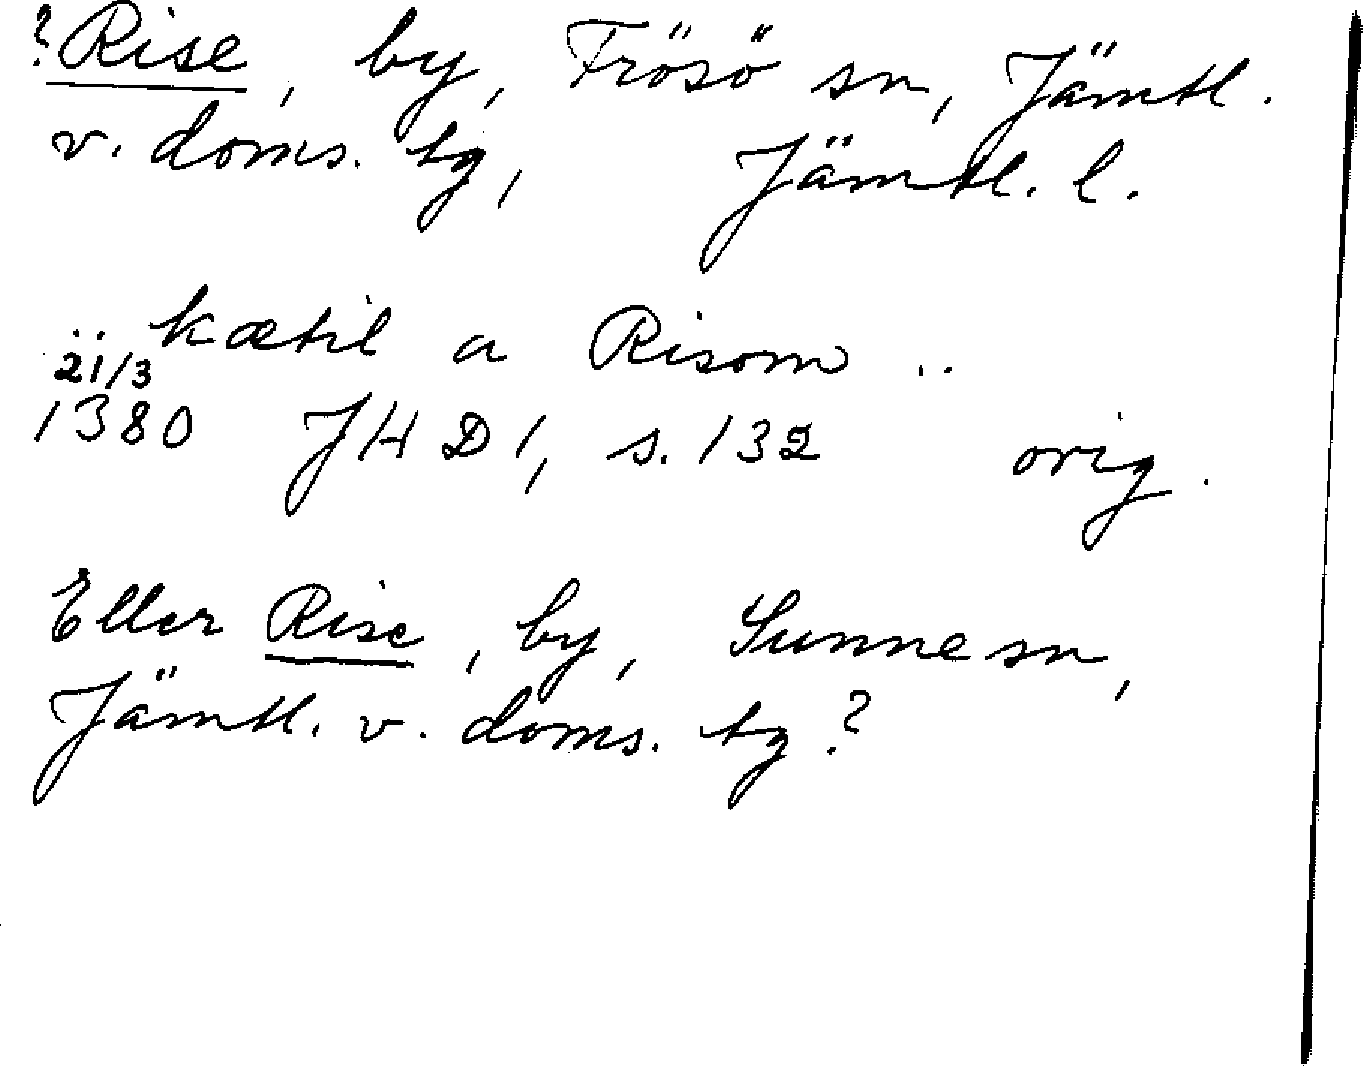 ?Rise, by, Frösö sn, Jämtl.
v. doms. tg, Jämtl. l.
.. kætil a Risom ..
21/3
1380 JHD 1, s. 132 orig.
Eller Rise, by, Sunne sn,
Jämtl. v. doms. tg?